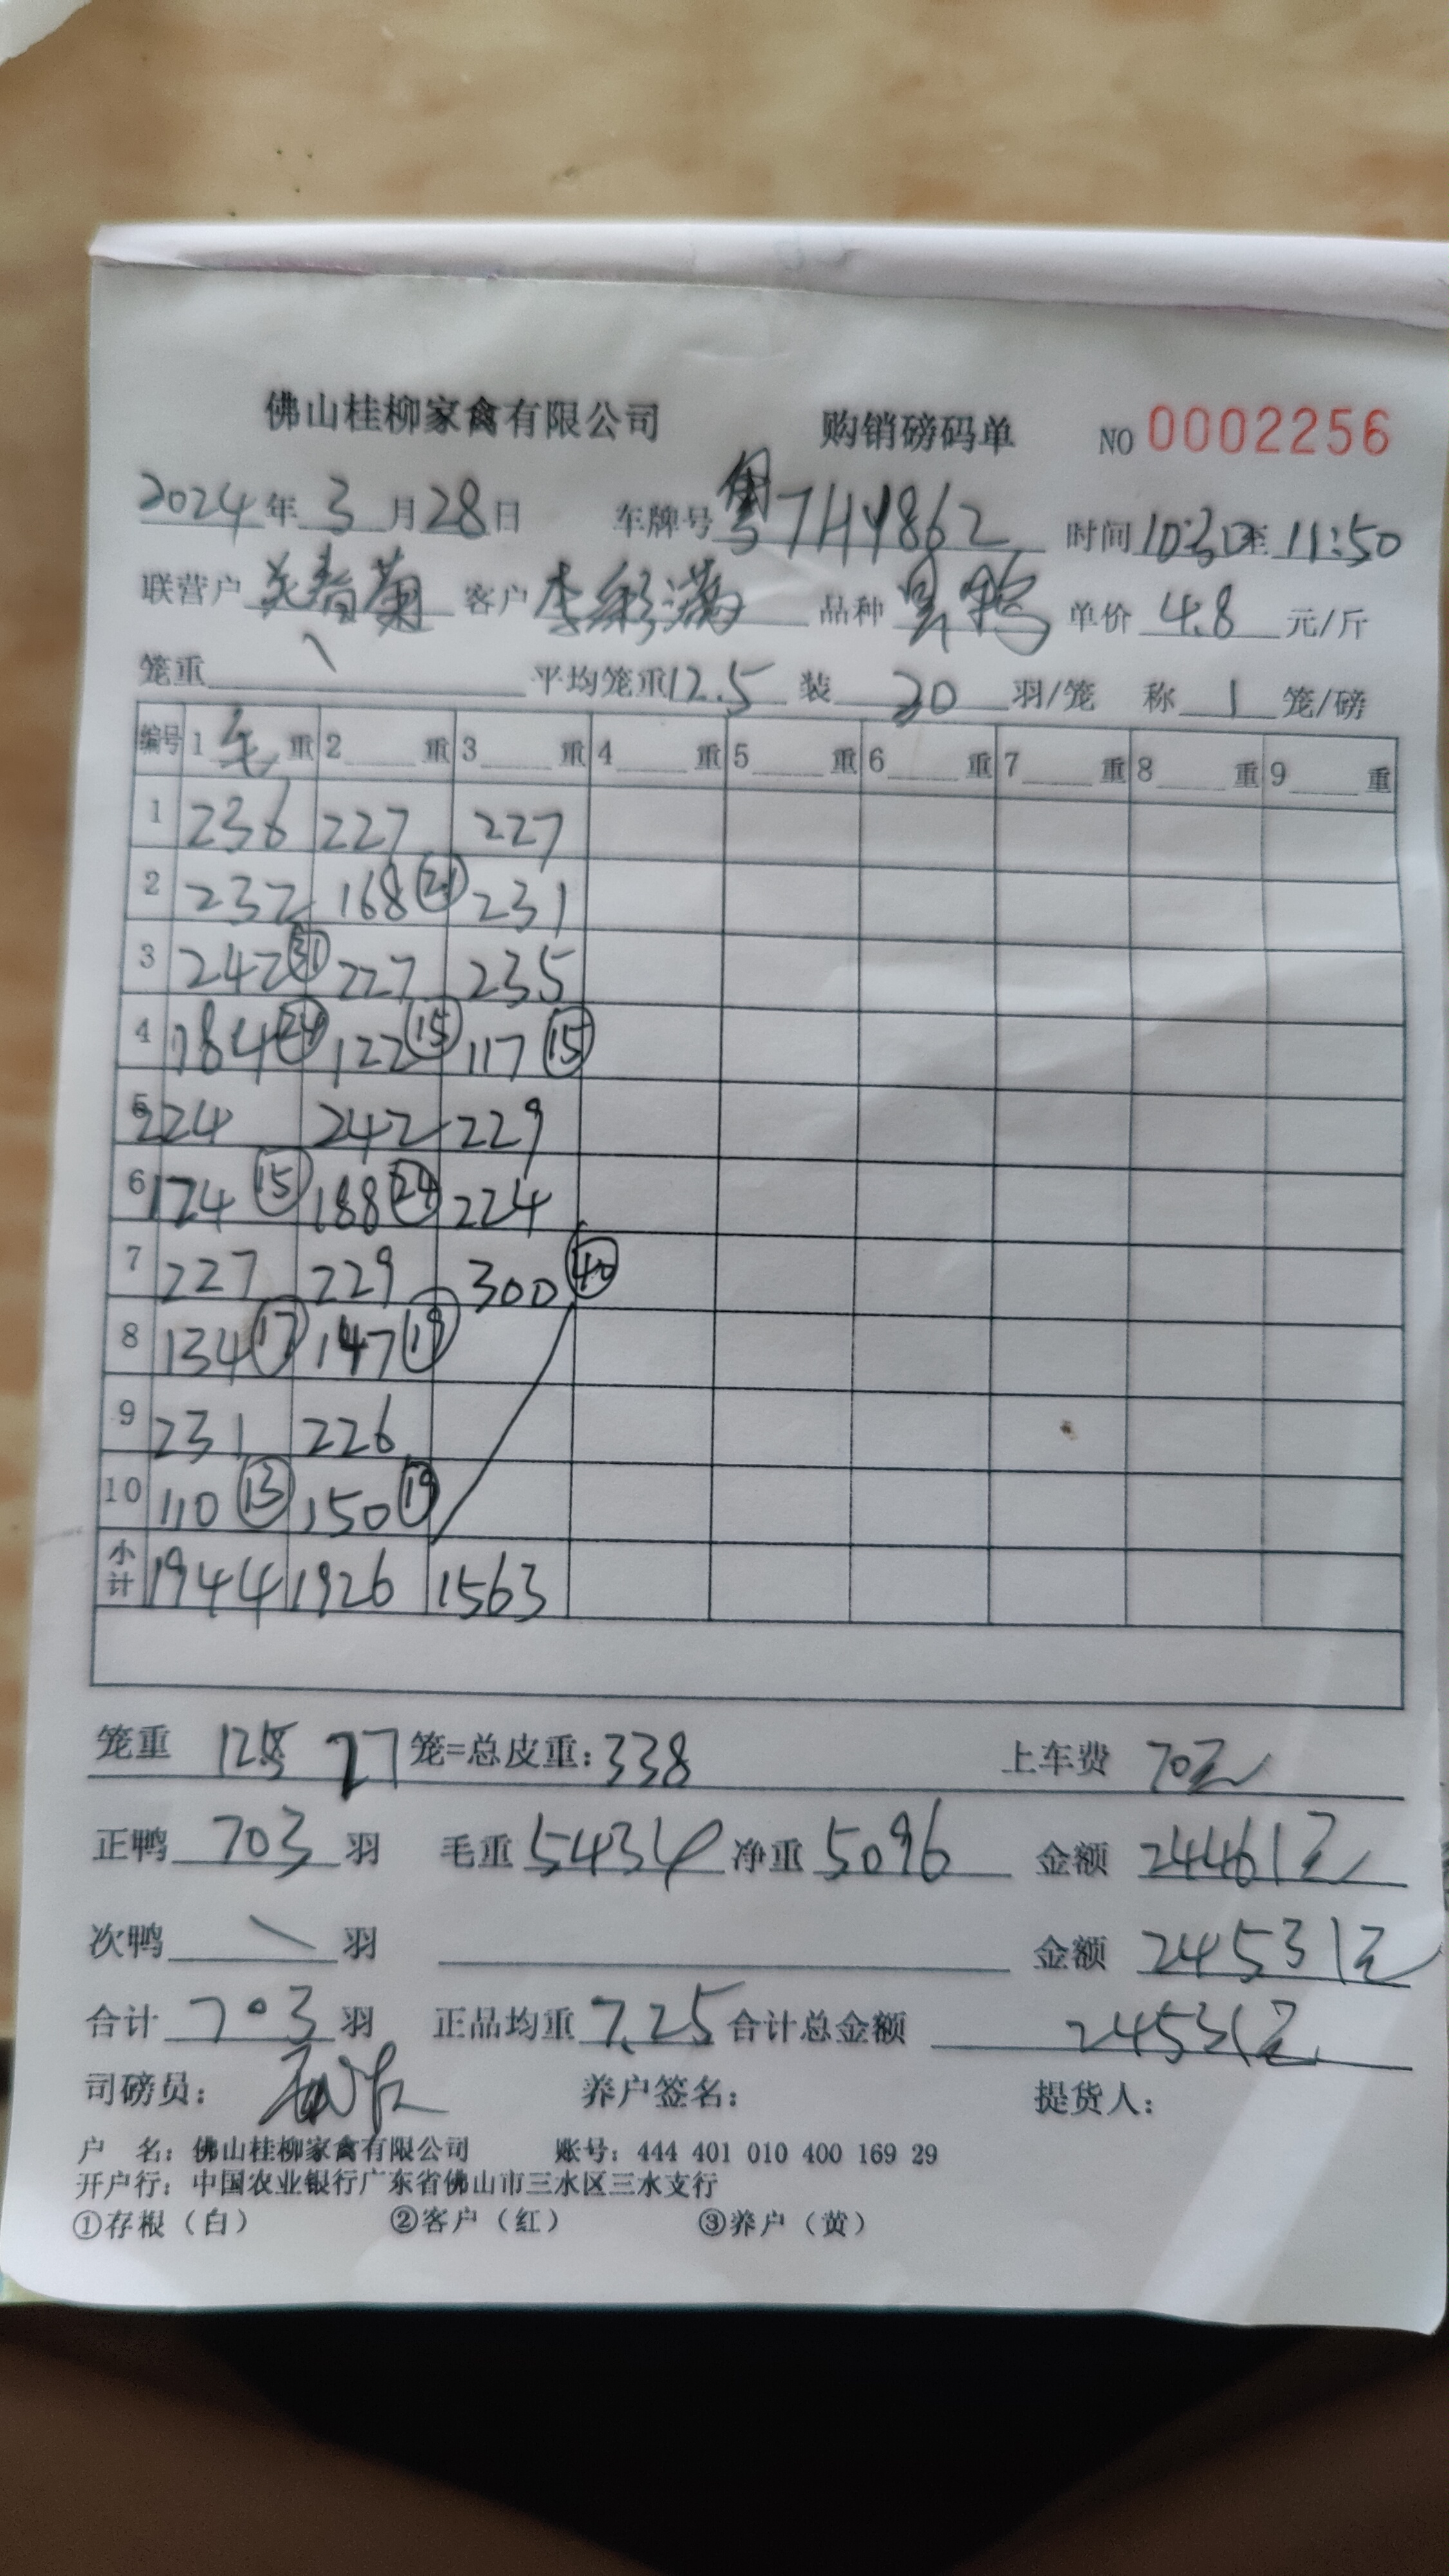 佛山桂柳家禽有限公司 购销磅码单 NO 0002256
2024年 3 月 28 日 车牌号 粤 7HY862 时间 10:30至 11:50
联营户 春菊 客户 李彩满 品种 鸭 单价 4.8 元/斤
笼重 \ 平均笼重 12.5 装 30 羽/笼 称 1 笼/磅
编号 1 毛 重 2 重 3 重 4 重 5 重 6 重 7 重 8 重 9 重
1 236 227 227
2 232 168 ㉑ 231
3 242 ㉛ 227 235
4 184 ㉔ 122 ⑮ 117 ⑮
5 224 242 229
6 124 ⑮ 188 ㉔ 224
7 227 229 300 ㊵
8 134 ⑰ 147 ⑲
9 231 226
10 110 ⑬ 150 ⑲
小计 1944 1926 1563
笼重 12.5 27 笼=总皮重: 338 上车费 70元
正鸭 703 羽 毛重 5434 净重 5096 金额 24461元
次鸭 \ 羽 金额 24531元
合计 703 羽 正品均重 7.25 合计总金额 24531元
司磅员: 养户签名: 提货人:
户 名: 佛山桂柳家禽有限公司 账号: 444 401 010 400 169 29
开户行: 中国农业银行广东省佛山市三水区三水支行
①存根（白） ②客户（红） ③养户（黄）